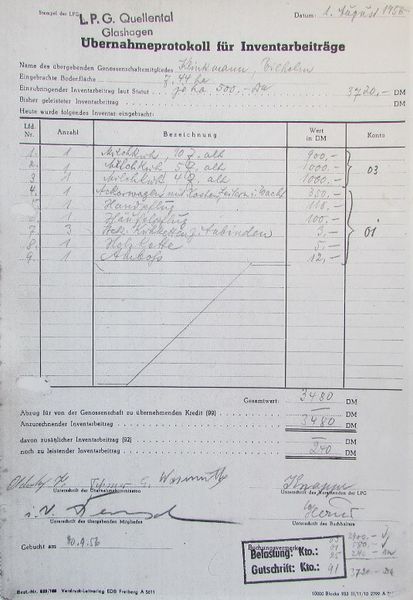 Stempel des LPG
L.P.G. Quellental
Glashagen
Datum: 1. August 1956
Übernahmeprotokoll für Inventarbeiträge
Name des übergebenden Genossenschaftsmitgliedes Klinkmann, Wilhelm
Eingebrachte Bodenfläche 7,44 ha
Einzubringender Inventarbeitrag laut Statut je ha 500,- DM 3720,- DM
Bisher geleisteter Inventarbeitrag DM
Heute wurde folgendes Inventar eingebracht:
Lfd. Nr. Anzahl Bezeichnung Wert in DM Konto
1. 1 Milchkuh, 10 J. alt 900,-
2. 1 Milchkuh 5 J. alt 1000,- 03
3. 1 Milchkuh 4 J. alt 1000,-
4. 1 Ackerwagen mit Kasten, Leitern 350,-
5. 1 Handpflug
6. 1 Häufelpflug 100,-
7. 3 zum Anbinden 3,- 01
8. 1 5,-
9. 1 Amboß 12,-
Gesamtwert: 3480 DM
Abzug für von der Genossenschaft zu übernehmenden Kredit (99) — DM
Anzurechnender Inventarbeitrag: 3480 DM
davon zusätzlicher Inventarbeitrag (92) — DM
noch zu leistender Inventarbeitrag 240 DM
Unterschrift der Übernahmekommission
Unterschrift des Vorsitzenden der LPG
i. V.
Unterschrift des übergebenden Mitgliedes
Unterschrift des Buchhalters
Gebucht am 30.9.56
Buchungsvermerke
Belastung: Kto.:
Gutschrift: Kto.: 91 3720,-
Best.-Nr. Vordruck-Leitverlag EDS Freiberg A 5611